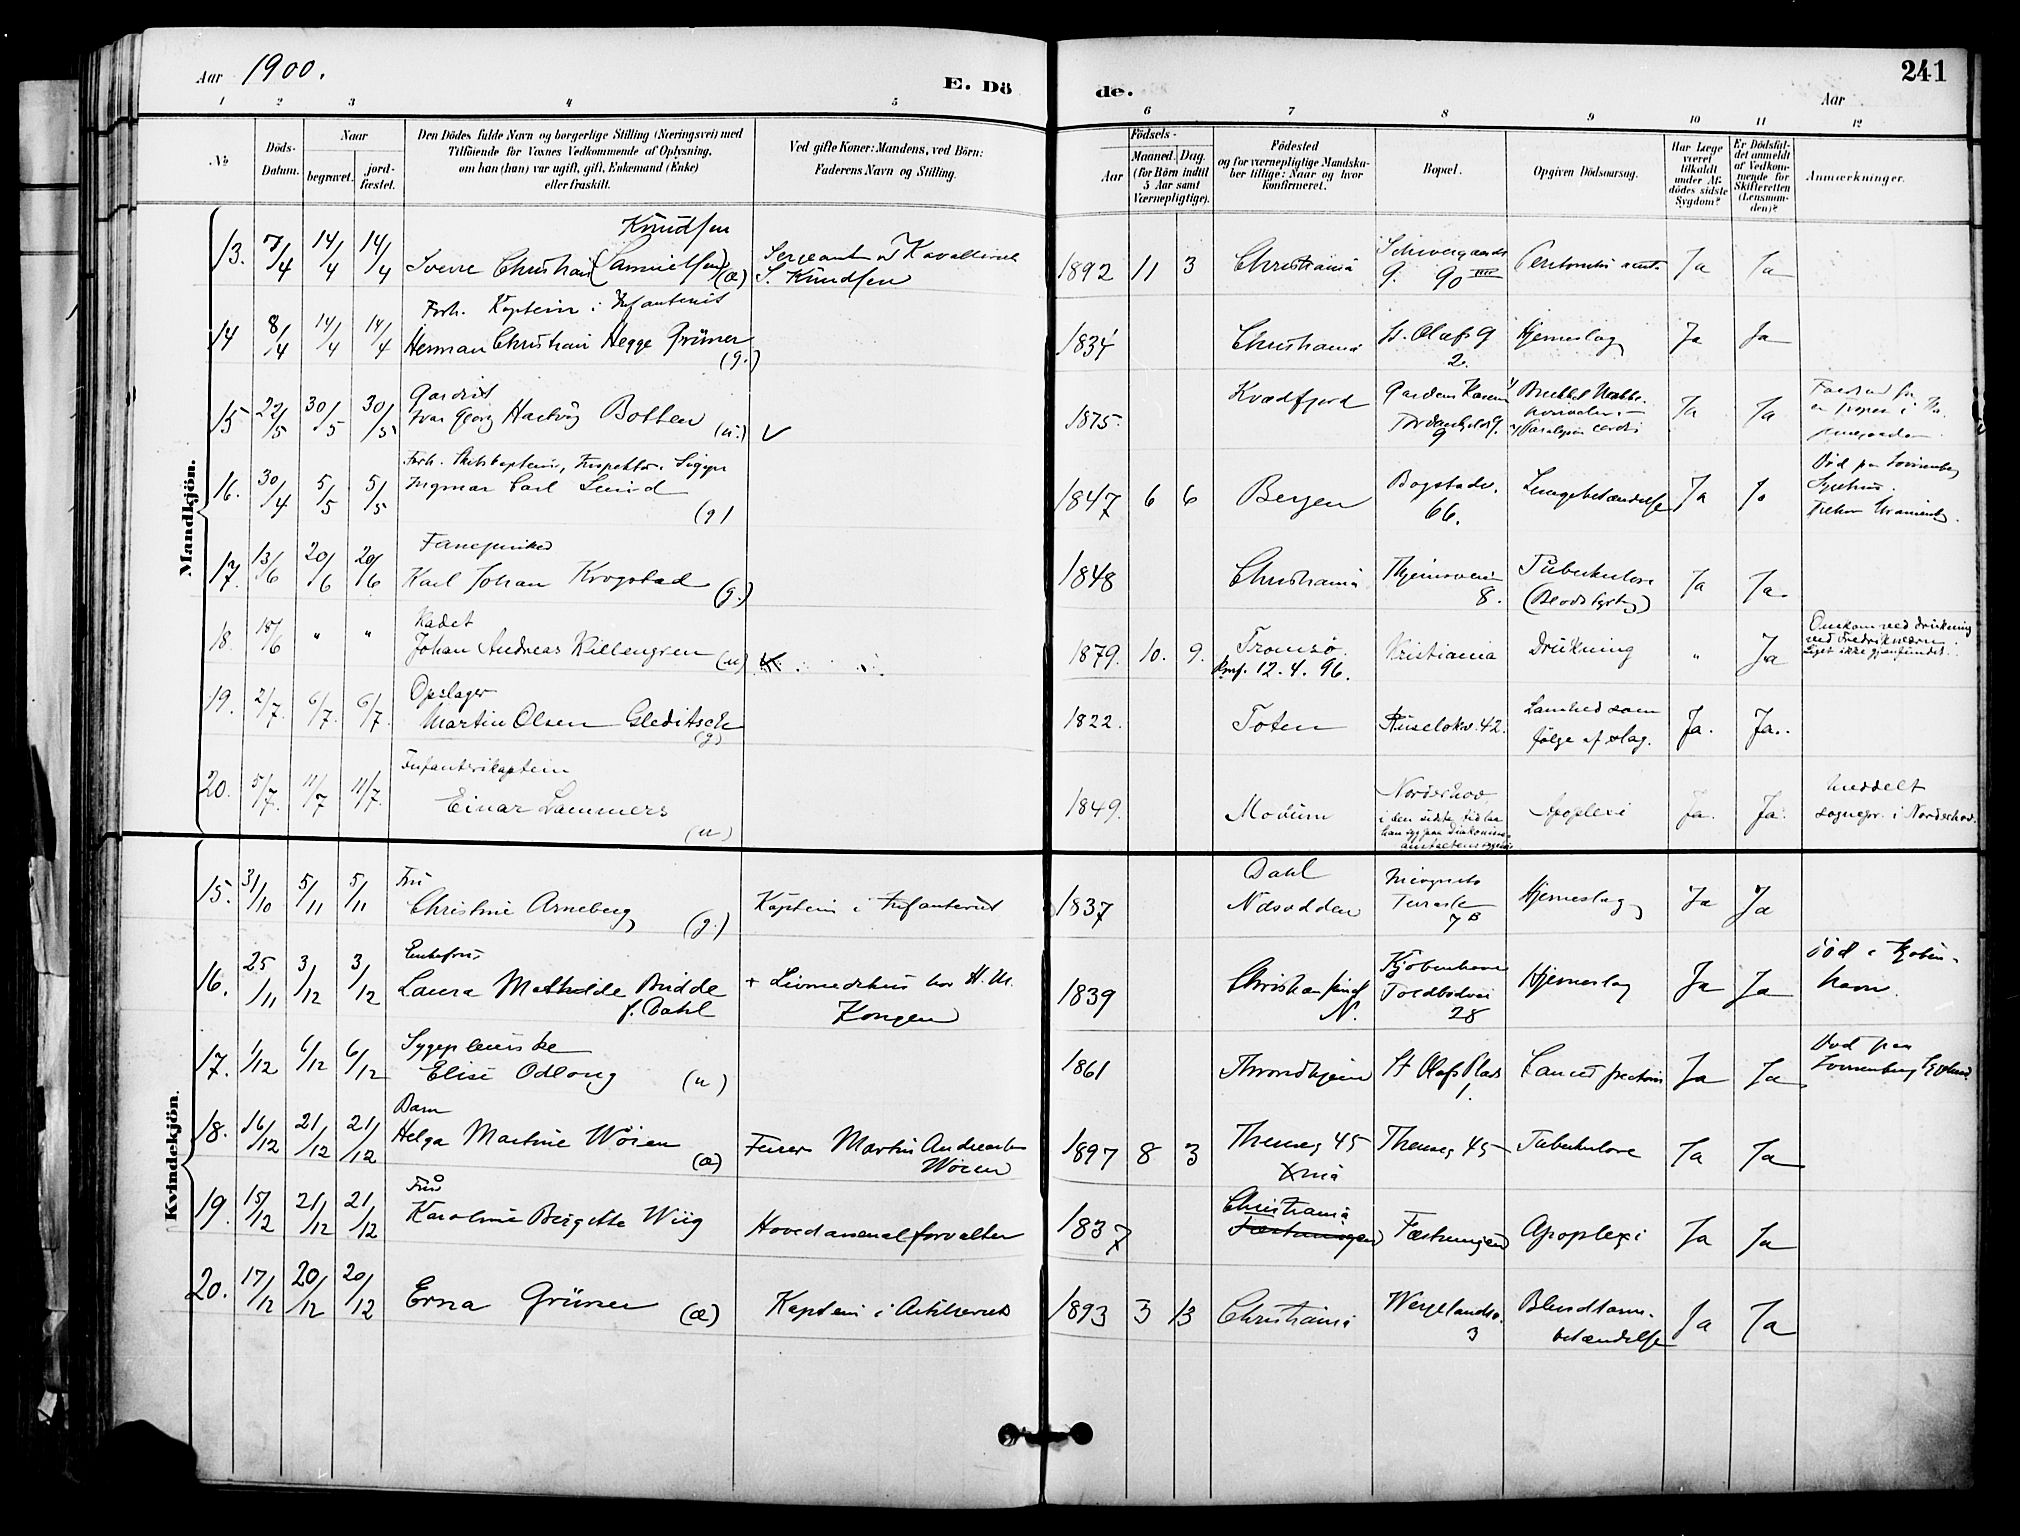 Aar 1900.
E. Dö
de.
241
Aar
1 2 3 4 5 6 7 8 9 10 11 12
No
Döds-
Datum.
Naar
begravet.
jord-
fæstet.
Den Dödes fulde Navn og borgerlige Stilling (Næringsvei) med
Tilföiende for Voxnes Vedkommende af Oplysning,
om han (hun) var ugift, gift, Enkemand (Enke)
eller fraskilt.
Ved gifte Koner: Mandens, ved Börn:
Faderens Navn og Stilling.
Födsels-
Aar
Maaned.
Dag.
(for Börn indtil
5 Aar samt
Værnepligtige).
Födested
og for værnepligtige Mandska-
ber tillige: Naar og hvor
konfirmeret.
Bopæl.
Opgiven Dödsaarsag.
Har Læge
været
tilkaldt
under Af-
dödes sidste
Sygdom?
Er Dödsfal-
det anmeldt
af Vedkom-
mende for
Skifteretten
(Lensman-
den)?
Anmærkninger.
Mandkjön.
Knudsen
13. 7/4 14/4 14/4 Sverre Christian (Samuelsen) (æ)
Sergeant v/ Kavalleriet
S. Knudsen
1892 11 3 Christiania
Schweigaards
g. 90 IIII
Ja Ja
Forh. Kaptein i Infanteriet
14 8/4 14/4 14/4 Herman Christian Hegge Grüner (g.)
1834 Christiania St. Olafs g 2. Hjerneslag Ja Ja
Gardist
15 22/5 30/5 30/5 Ivar Georg Hartvig Botten (u.)
1875. Kvædfjord
Ja Ja
16. 30/4 5/5 5/5 Ingmar Carl Lund (g)
1847 6 6 Bergen Bogstadv. 66. Lungebetændelse Ja Ja
Død paa Lovisenberg
Sygehus.
17. 13/6 20/6 20/6 Karl Johan Krogstad (g.)
1848 Christiania 8. Tuberkulose
(Blodstyrtng) Ja Ja.
Kadet
18. 15/6 " " Johan Andreas Killengren (u)
1879. 10. 9. Tromsø.
Konf. 12. 4. 96.
Kristiania Drukning " Ja
Omkom ved drukning
ved Fredriksværn.
Liget ikke gjenfundet.
Opslager
19. 2/7. 6/7. 6/7. Martin Olsen Gleditsch (g)
1822. Toten Ruseløkv. 42.
Lamhed som
følge af slag. Ja. Ja.
Infanterikaptein
20. 5/7. 11/7 11/7. Einar Lammers (u)
1849. Modum
Norderhov,
i den sidste tid laa
han syg paa Diakonisse-
Apoplexi Ja. Ja.
Meddelt
sognepr. i Norderhov.
Kvindekjön.
Fru
15. 31/10 5/11 5/11 Christine Arneberg (g.)
Kaptein i Infanteriet
1837
Dahl
Næsodden
Incognito
Terrasse
7 B
Hjerneslag Ja Ja
Enkefru
16. 25/11 3/12 3/12 Laura Mathilde Budde
f. Dahl
+ Livmedikus hos H. M.
Kongen
1839
N.
Kjøbenhavn
Toldbodvei
28
Hjerneslag Ja Ja
Død i Kjøben-
havn.
Sygepleierske
17. 1/12 6/12 6/12 Elise Odlong (u)
1861 Throndhjem St Olafs Plads 1. Ja Ja
Død paa
Lovisenberg Sygehus
Barn
18. 16/12 21/12 21/12 Helga Martine Wøien (æ)
Furer Martin Andreas
Wøien
1897 8 3 Thereses g 45
Xnia
Thereses g 45 Tuberkulose Ja Ja
Fru
19. 15/12 21/12 21/12 Karoline Birgitte Wiig
Hovedarsenalforvalter
1837 Christiania
Fæstningen
Fæstningen Apoplexi Ja Ja
20. 17/12 20/12 20/12 Erna Grüner (æ)
Kaptein i Artilleriet
1893 3 13 Christiania Wergelandsv.
3
Blindtarm-
betændelse Ja Ja